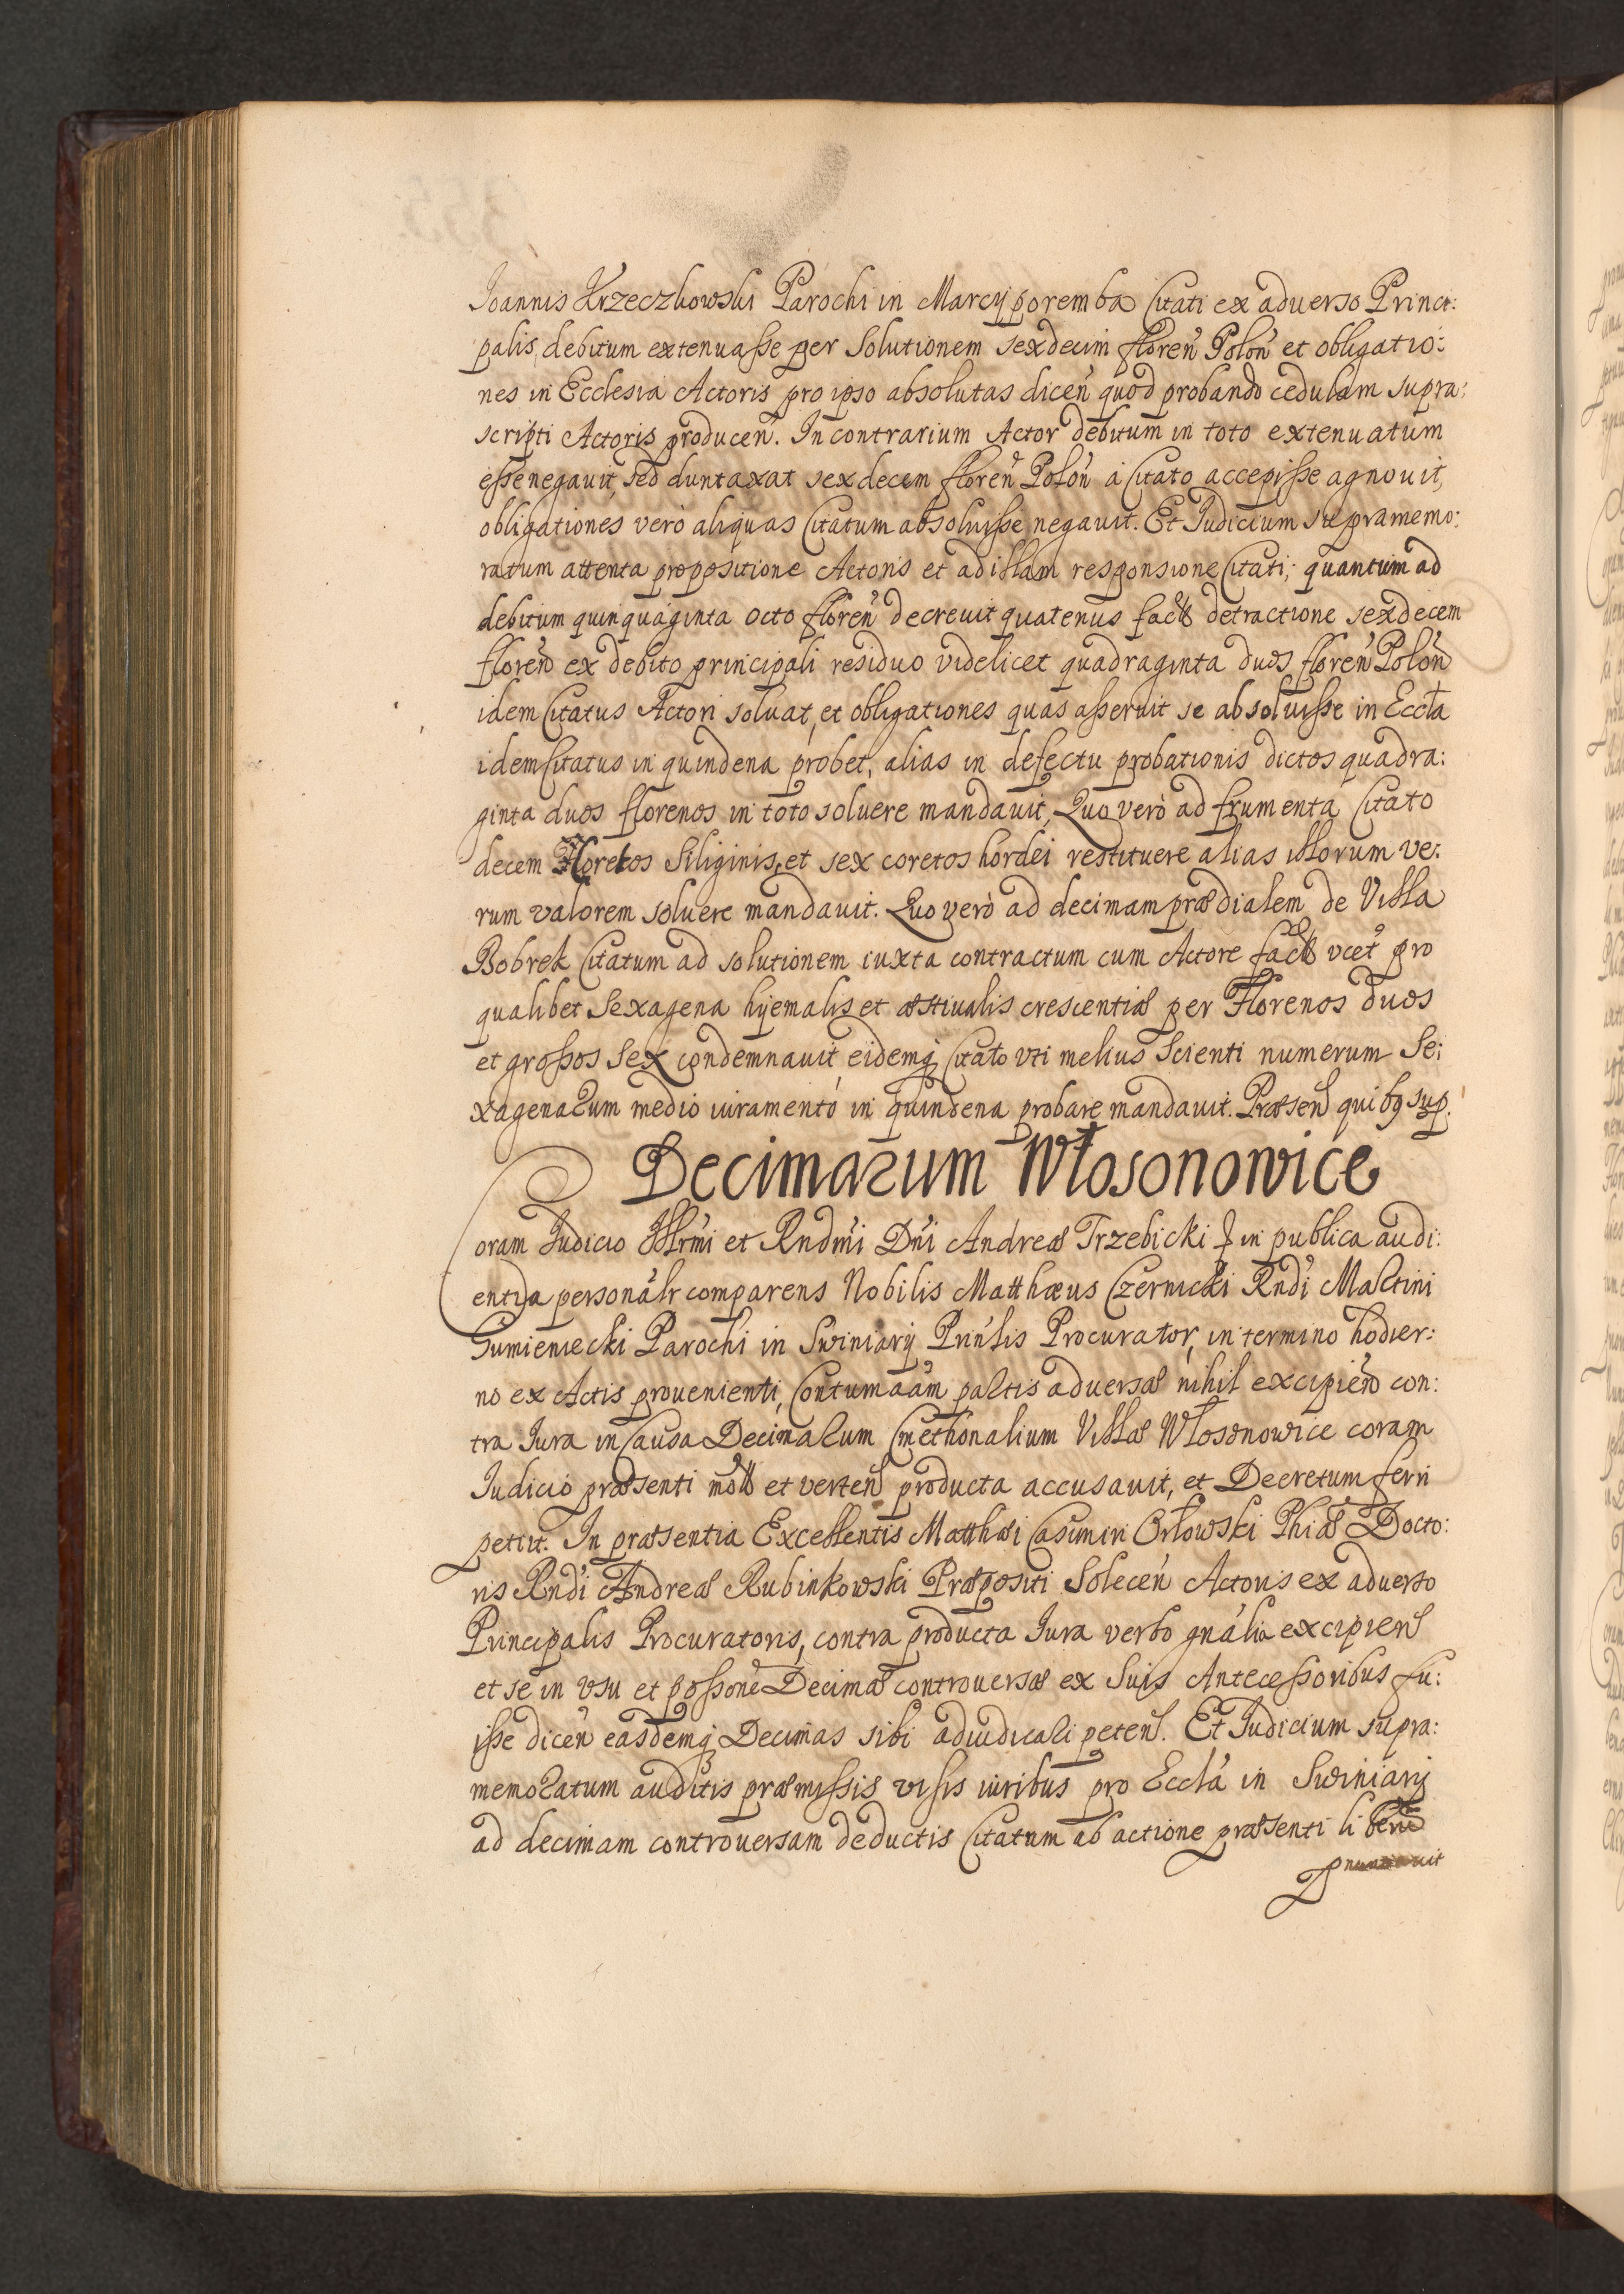 Joannis Krzeczkowski Parochi in Marcyporemba Citati ex aduerso Princi:
palis, debitum extenuasse per Solutionem sexdecim floren Polon et obligatio:
nes in Ecclesia Actoris pro ipso absolutas dicen quod probando cedulam supra:
scripti Actoris producen. In contrarium Actor debitum in toto extenuatum
esse negauit, sed duntaxat sexdecem floren Polon á Citato accepisse agnouit,
obligationes veró aliquas Citatum absoluisse negauit. Et Judicium supramemo:
ratum attenta propositione Actoris et ad illam responsione Citati; quantum ad
debitum quinquaginta octo floren decreuit quatenus facta detractione sexdecem
floren ex debito principali residuo videlicet quadraginta duos floren Polon
idem Citatus Actori soluat, et obligationes quas asseruit se absoluisse in Eccla
idem Citatus in quindena probet, alias in defectu probationis dictos quadra:
ginta duos florenos in toto soluere mandauit, Quo veró ad frumenta Citato
decem Coretos Siliginis, et sex coretos hordei restituere alias illorum ve:
rum valorem soluere mandauit. Quo veró ad decimam prædialem de Villa
Bobrek Citatum ad solutionem iuxta contractum cum Actore factum vcet pro
qualibet Sexagena hyemalis et æstiualis crescentiæ per Florenos duos
et grossos Sex condemnauit eidemq Citato vti melius Scienti numerum Se:
xagenarum medio iuramento in quindena probare mandauit. Præsen quibq sup.
Decimarum Włosonowice
Coram Judicio Illrmi et Rndmi Dni Andreæ Trzebicki in publica audi:
entia personalr comparens Nobilis Matthæus Czernicki Rndi Martini
Gumieniecki Parochi in Swiniary Prinlis Procurator, in termino hodier:
no ex Actis prouenienti, Contumaam partis aduersæ nihil excipien con:
tra Jura in Causa Decimarum Cmethonalium Villæ Włosonowice coram
Judicio præsenti mota et verten producta accusauit, et Decretum ferri
petiit. In præsentia Excellentis Matthæi Casimiri Orłowski Phiæ Docto:
ris Rndi Andreæ Rubinkowski Præpositi Solecen Actoris ex aduerso
Principalis Procuratoris, contra producta Jura verbo gnalia excipien
et se in vsu et possone Decimæ controuersæ ex Suis Antecessoribus fu:
isse dicen easdemq Decimas sibi adiudicari peten. Et Judicium supra:
memoratum auditis præmissis visis iuribus pro Eccla in Swiniary
ad decimam controuersam deductis Citatum ab actione præsenti liberum
pnunciauit